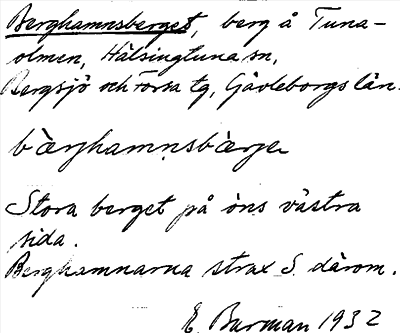 Berghamnsberget, berg å Tuna-
olmen, Hälsingtuna sn,
Bergsjö och Forsa tg, Gävleborgs län.
bàrjhamnsbàrje
Stora berget på öns västra
sida.
Berghamnarna strax S. därom.
E. Burman 1932